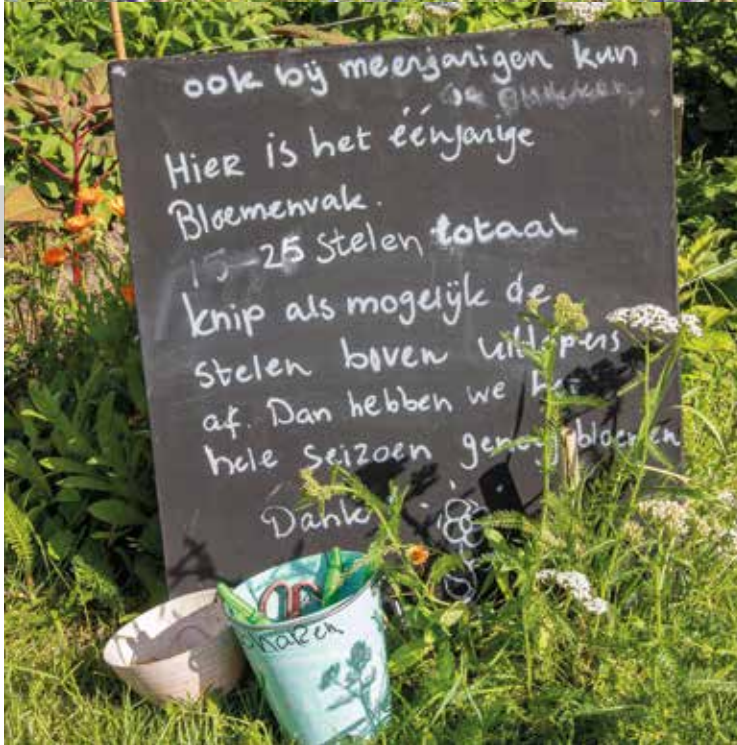 ook bij meerjarigen kun
je plukken
Hier is het éénjarige
Bloemenvak.
15-25 stelen totaal
knip als mogelijk de
stelen boven uitlopers
af. Dan hebben we het
hele seizoen genoeg bloemen
Dank